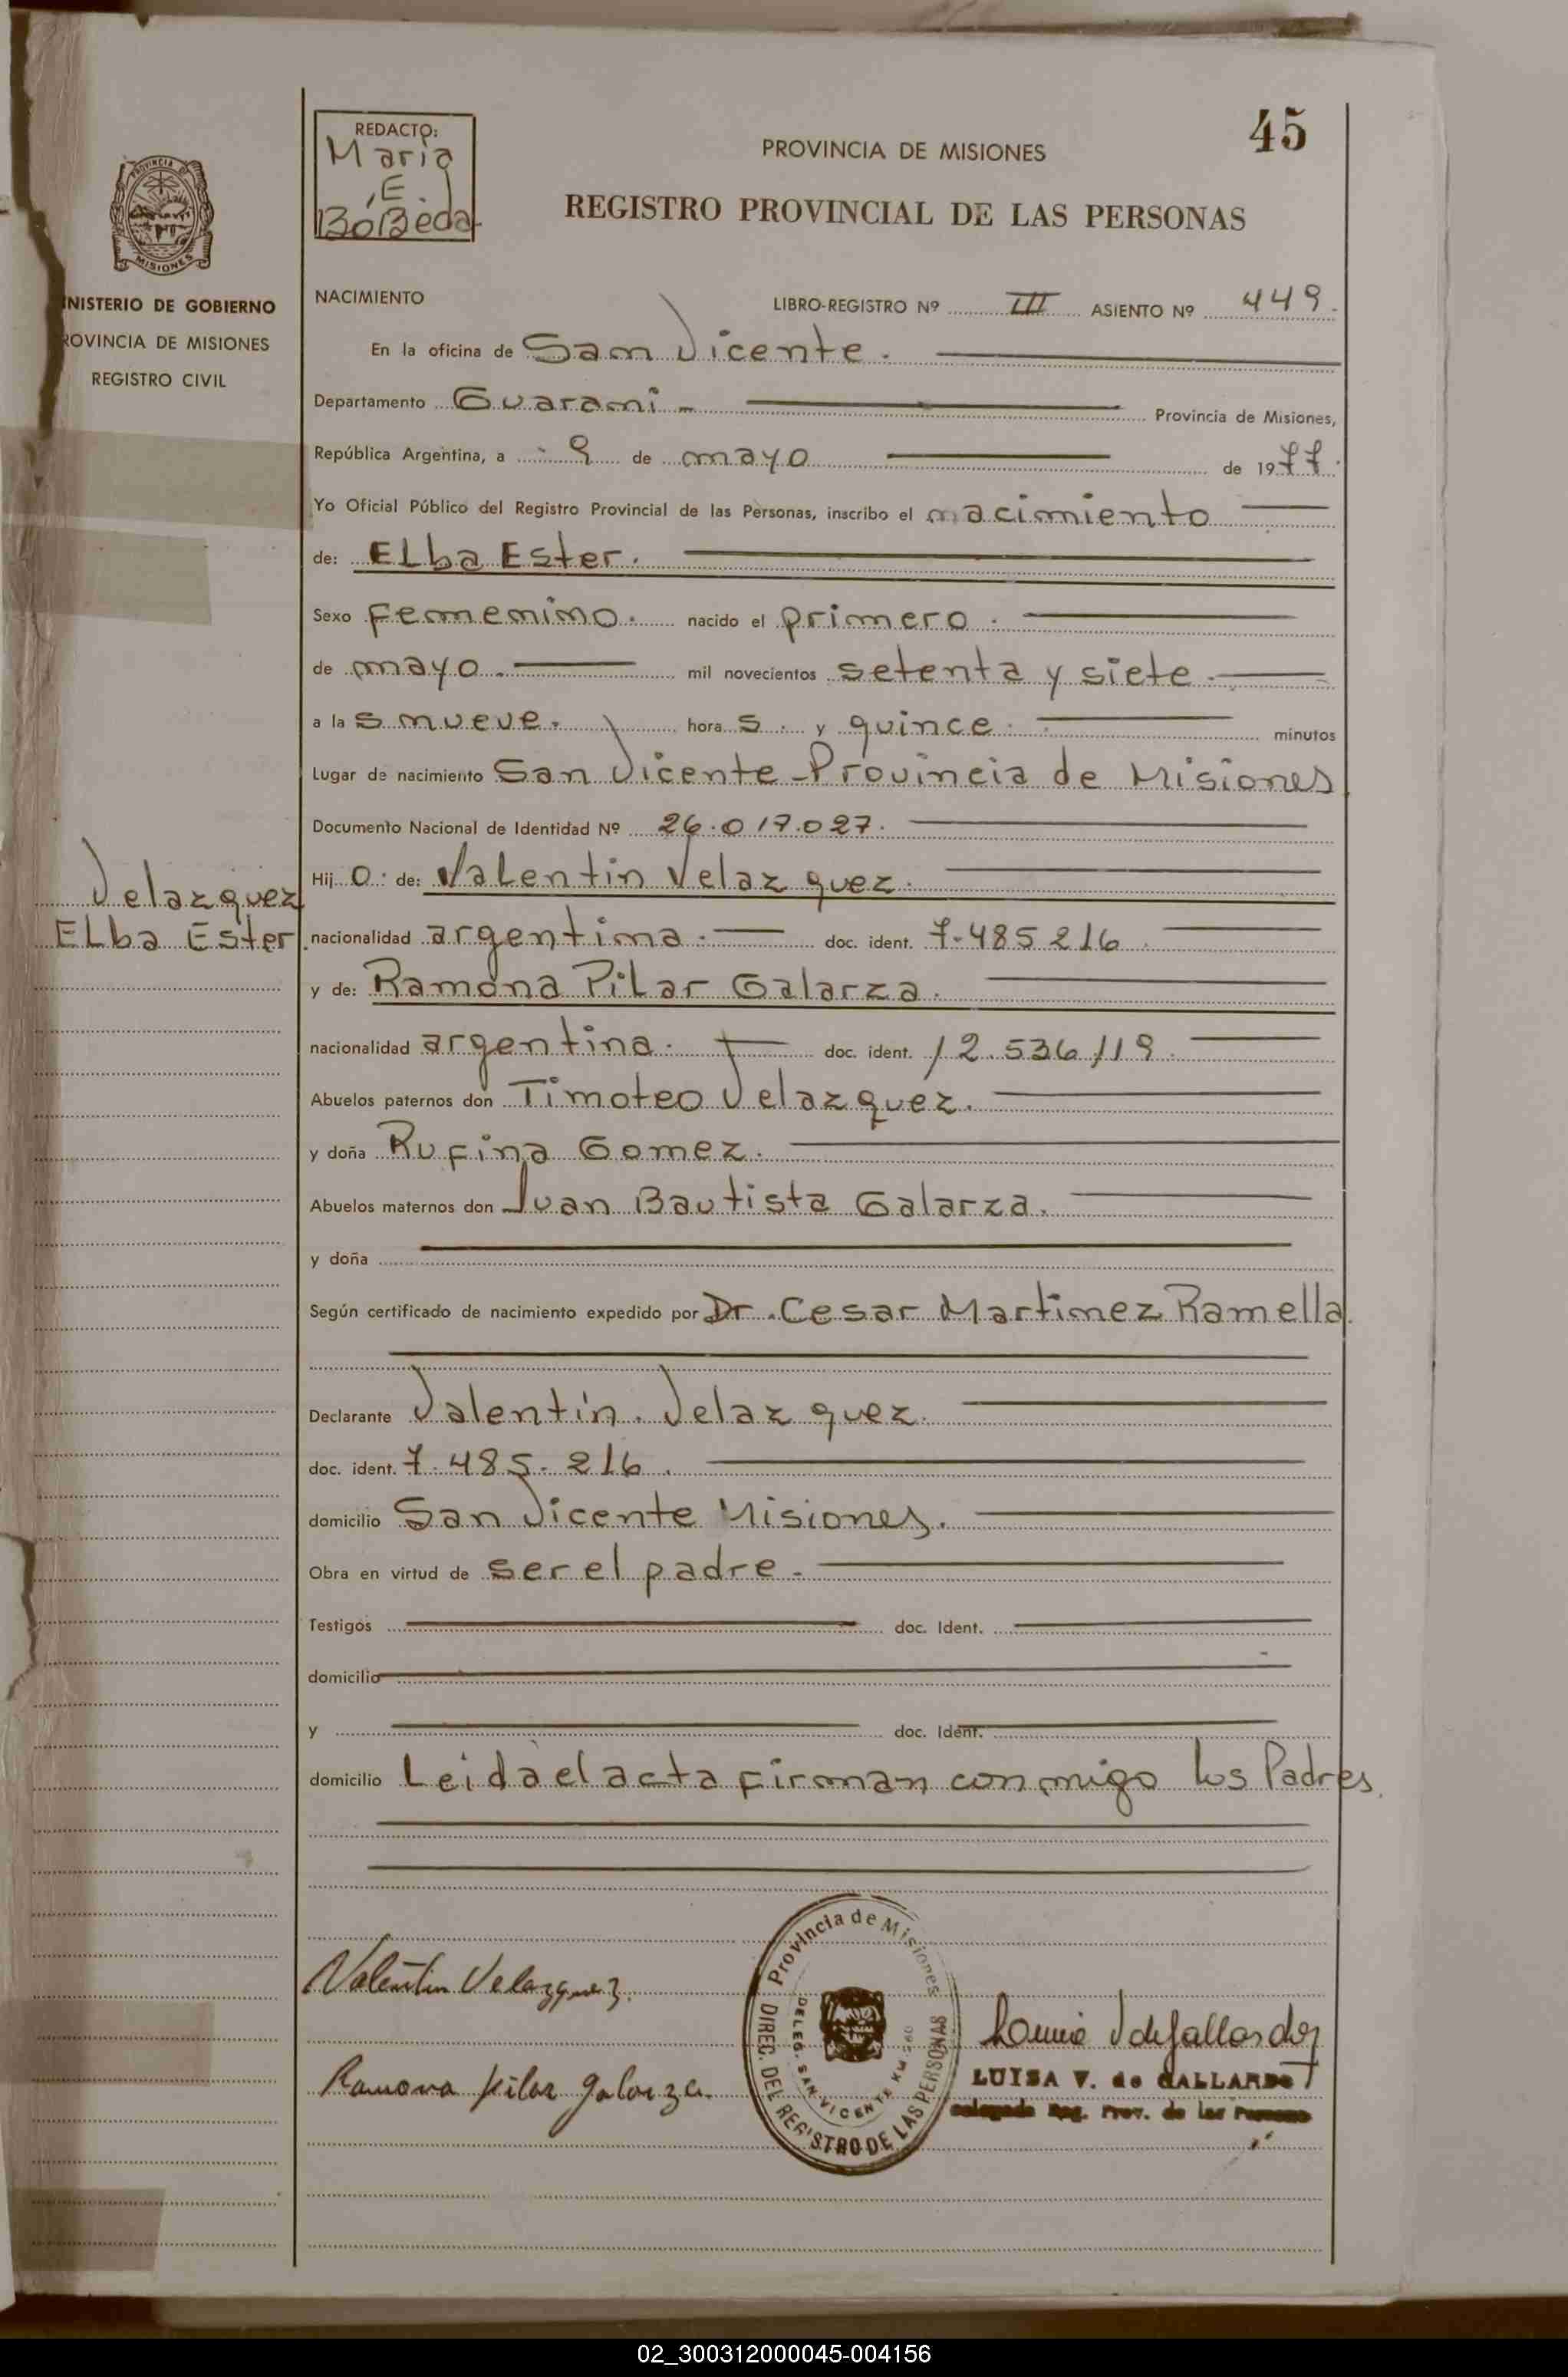 45
REDACTO:
Maria
E.
BóBeda
PROVINCIA DE MISIONES
REGISTRO PROVINCIAL DE LAS PERSONAS
PROVINCIA
MISIONES
NISTERIO DE GOBIERNO
ROVINCIA DE MISIONES
REGISTRO CIVIL
NACIMIENTO LIBRO-REGISTRO Nº III ASIENTO Nº 449.
En la oficina de San Vicente.
Departamento Guarani - Provincia de Misiones,
República Argentina, a 9 de mayo de 1977.
Yo Oficial Público del Registro Provincial de las Personas, inscribo el nacimiento
de: ELba Ester.
Sexo femenino. nacido el primero.
de mayo. mil novecientos setenta y siete.
a la s nueve. hora s. y quince. minutos
Lugar de nacimiento San Vicente-Provincia de Misiones
Documento Nacional de Identidad Nº 26.017.027.
Hij o. de: Valentin Velazquez.
Velazquez
ELba Ester
nacionalidad argentina. doc. ident. 7.485 216.
y de: Ramona Pilar Galarza.
nacionalidad argentina. doc. ident. 12.536119.
Abuelos paternos don Timoteo Velazquez.
y doña Rufina Gomez.
Abuelos maternos don Juan Bautista Galarza.
y doña
Según certificado de nacimiento expedido por Dr. Cesar Martinez Ramella.
Declarante Valentín. Velazquez.
doc. ident. 7.485.216.
domicilio San Vicente Misiones.
Obra en virtud de ser el padre.
Testigos doc. Ident.
domicilio
y doc. Ident.
domicilio Leida el acta firman conmigo los Padres.
Valentin Velazquez.
Ramona Pilar Galarza.
Provincia de Misiones
DIREC. DEL REGISTRO DE LAS PERSONAS
DELEG. SAN VICENTE KM
LUISA V. de GALLARDO
Delegada Reg. Prov. de las Personas
02_300312000045-004156